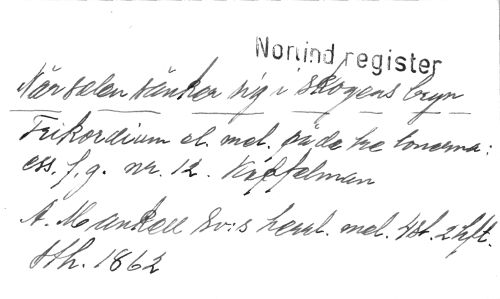 Norlind register
När solen sänker sig i skogens bryn
Trikordium el. mel. på de tre tonerna:
ess. f. g. nr. 12. Kapfelman
A. Mankell Sv:s herrl. mel. 4st. 2 hft.
Sth. 1862